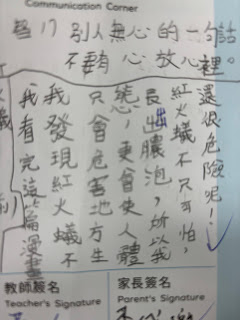 Communication Corner
17) 別人無心的一句話
不要有心放心裡。
我看完這篇漫畫
我發現紅火蟻不
只會危害地方生
態，更會使人體
長出膿泡，所以我
紅火蟻不只可怕，
還很危險呢！
教師簽名
Teacher's Signature
家長簽名
Parent's Signature